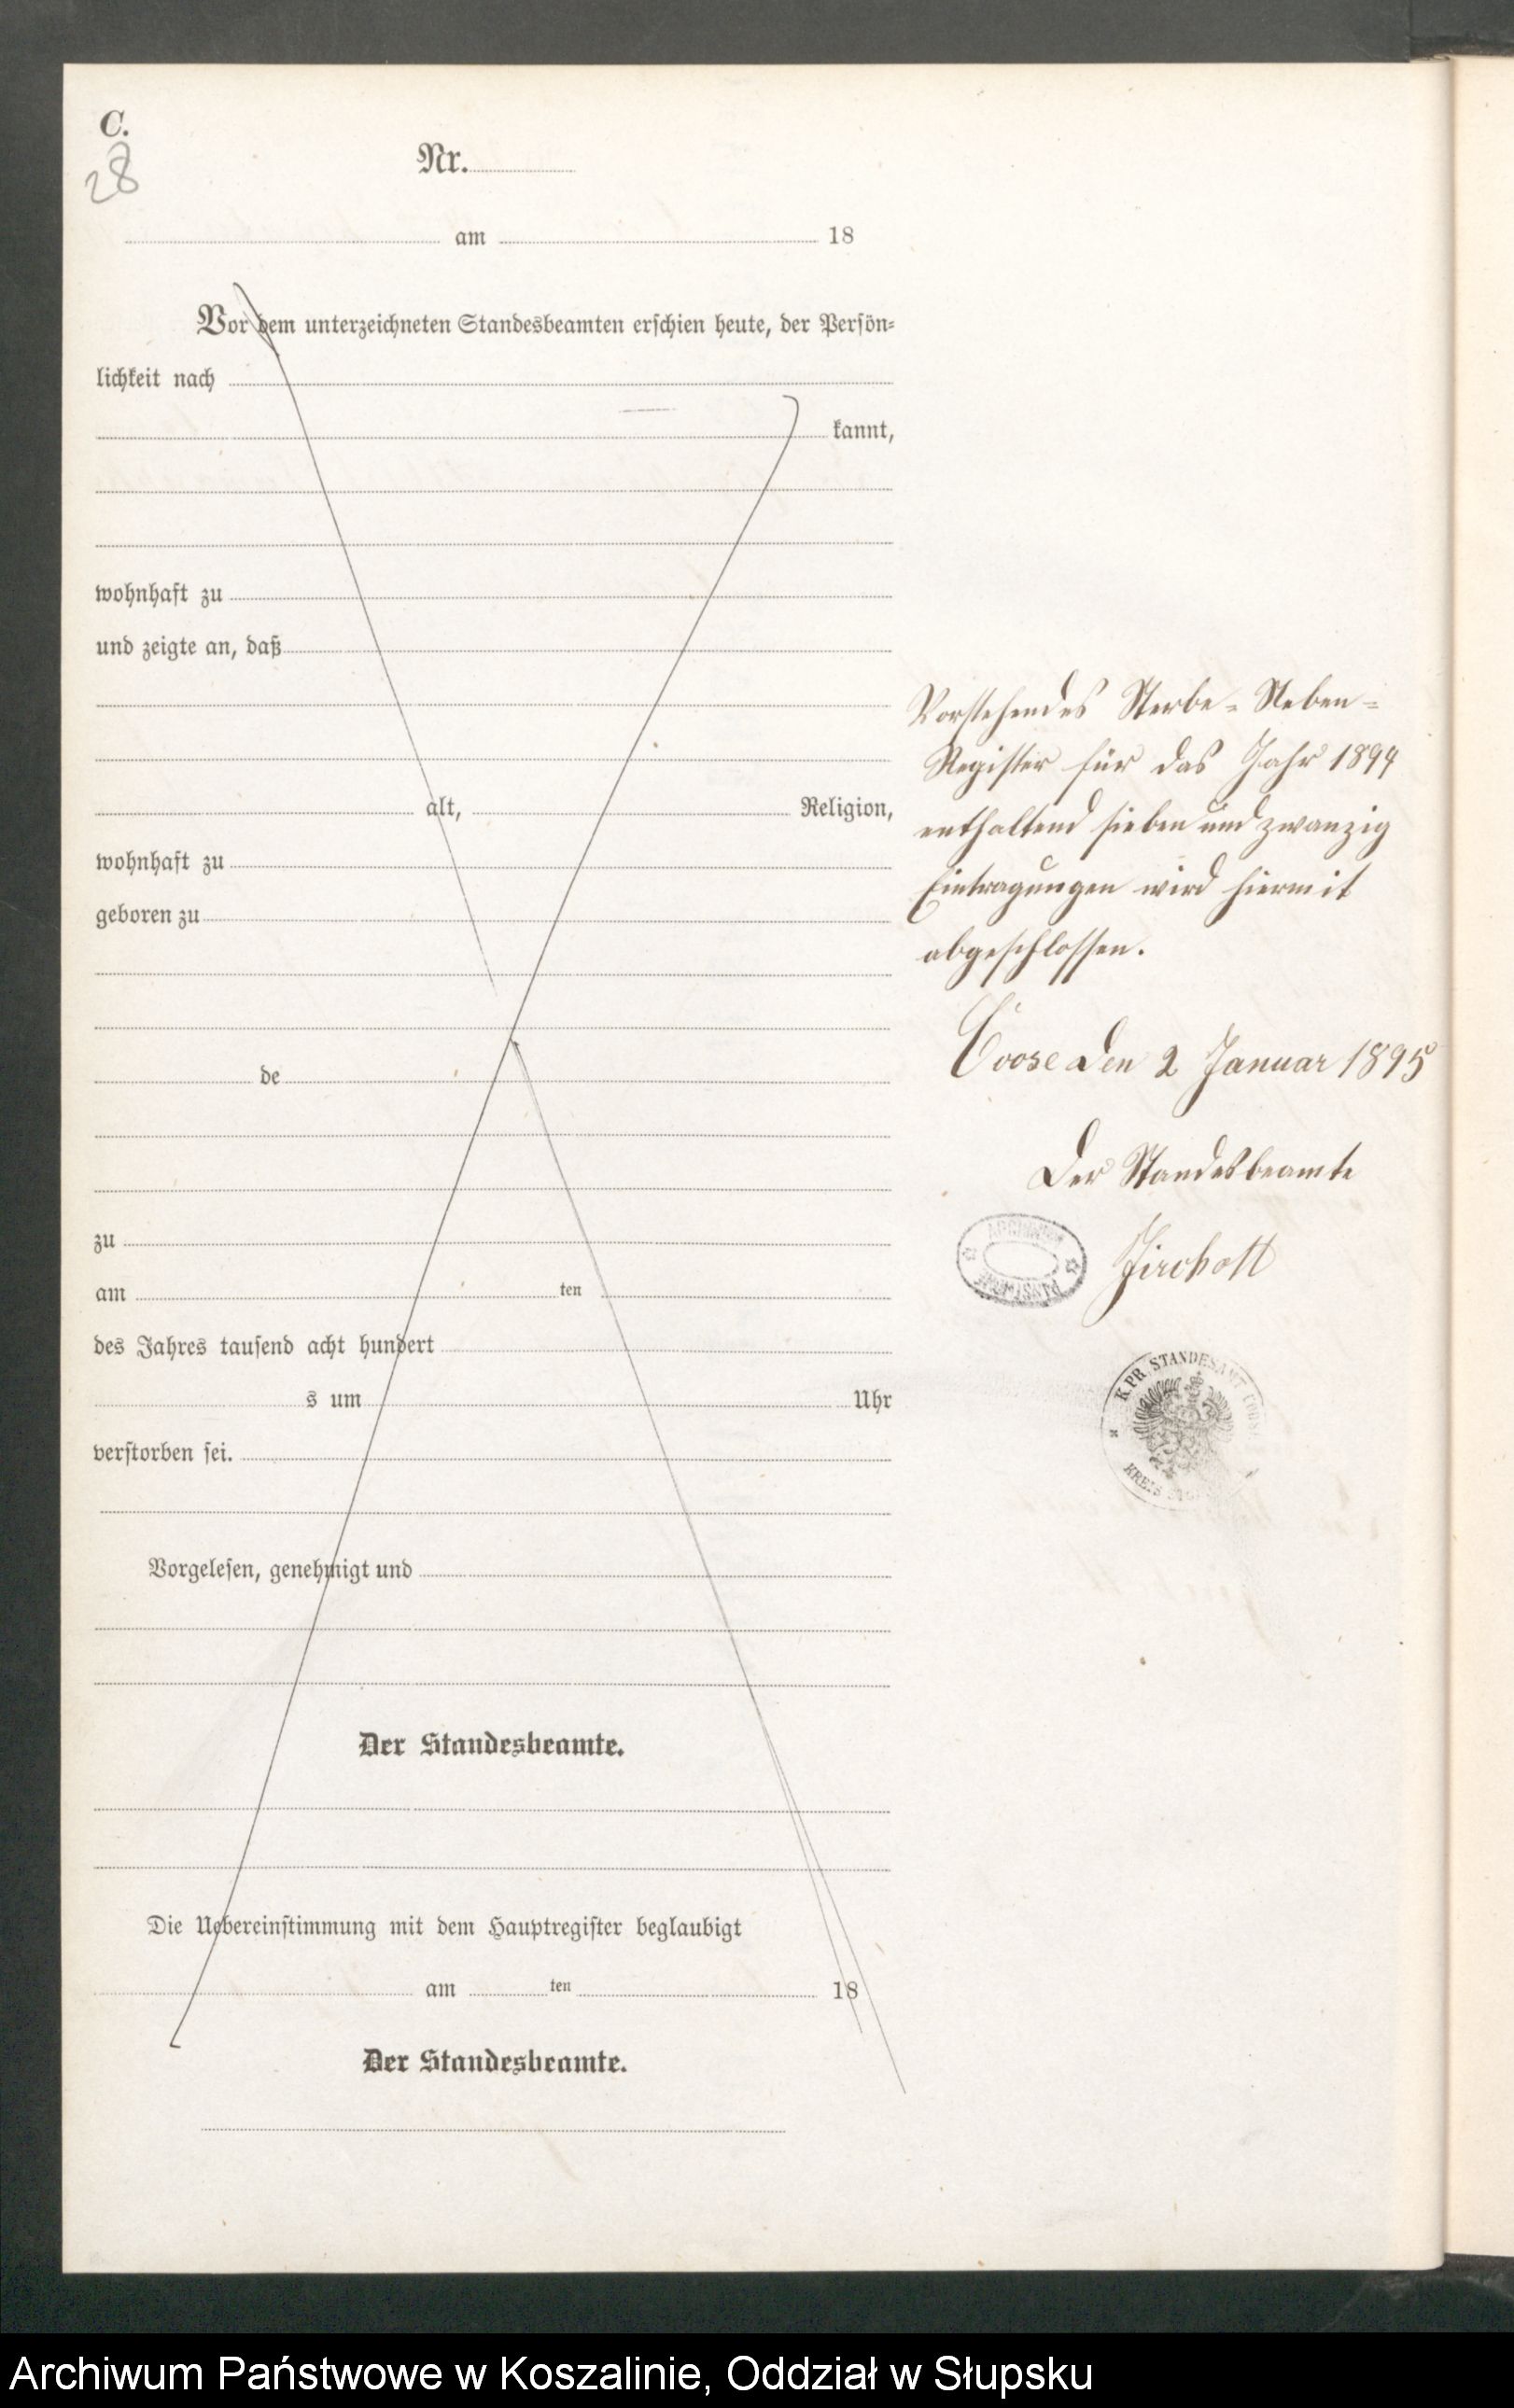 C.
28
Nr.
am 18
Vor dem unterzeichneten Standesbeamten erschien heute, der Persön-
lichkeit nach
kannt,
wohnhaft zu
und zeigte an, daß
alt, Religion,
wohnhaft zu
geboren zu
de
zu
am ten
des Jahres tausend acht hundert
s um Uhr
verstorben sei.
Vorgelesen, genehmigt und
Der Standesbeamte.
Die Uebereinstimmung mit dem Hauptregister beglaubigt
am ten 18
Der Standesbeamte.
Vorstehendes Sterbe-Neben-
Register für das Jahr 1894
enthaltend sieben und zwanzig
Eintragungen wird hiermit
abgeschlossen.
Coose den 2 Januar 1895
Der Standesbeamte
ARCHIWUM
PAŃSTWOWE
K.PR. STANDESAMT
KREIS
Archiwum Państwowe w Koszalinie, Oddział w Słupsku